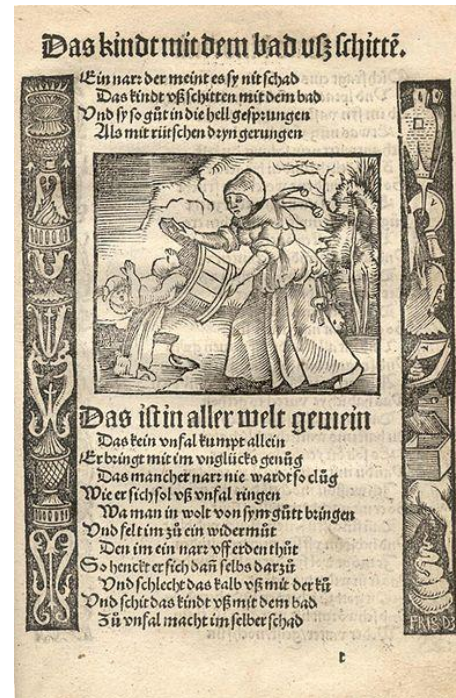 Das kindt mit dem bad vsz schittē.
Ein narr der meint es sy nit schad
Das kindt vß schitten mit dem bad
Vnd sy so gůt in die hell gesprungen
Als mit rütschen dryn gerungen
Das ist in aller welt gemein
Das kein vnfal kumpt allein
Er bringt mit im vnglücks genůg
Das mancher narr nie wardt so clůg
Wie er sich sol vß vnfal ringen
Wa man in wolt von sym gůtt bringen
Vnd felt im zů ein widermůt
Den im ein narr vff erden thůt
So henckt er sich dañ selbs darzů
Vnd schlecht das kalb vß mit der ků
Vnd schit das kindt vß mit dem bad
Zů vnfal macht im selber schad
t